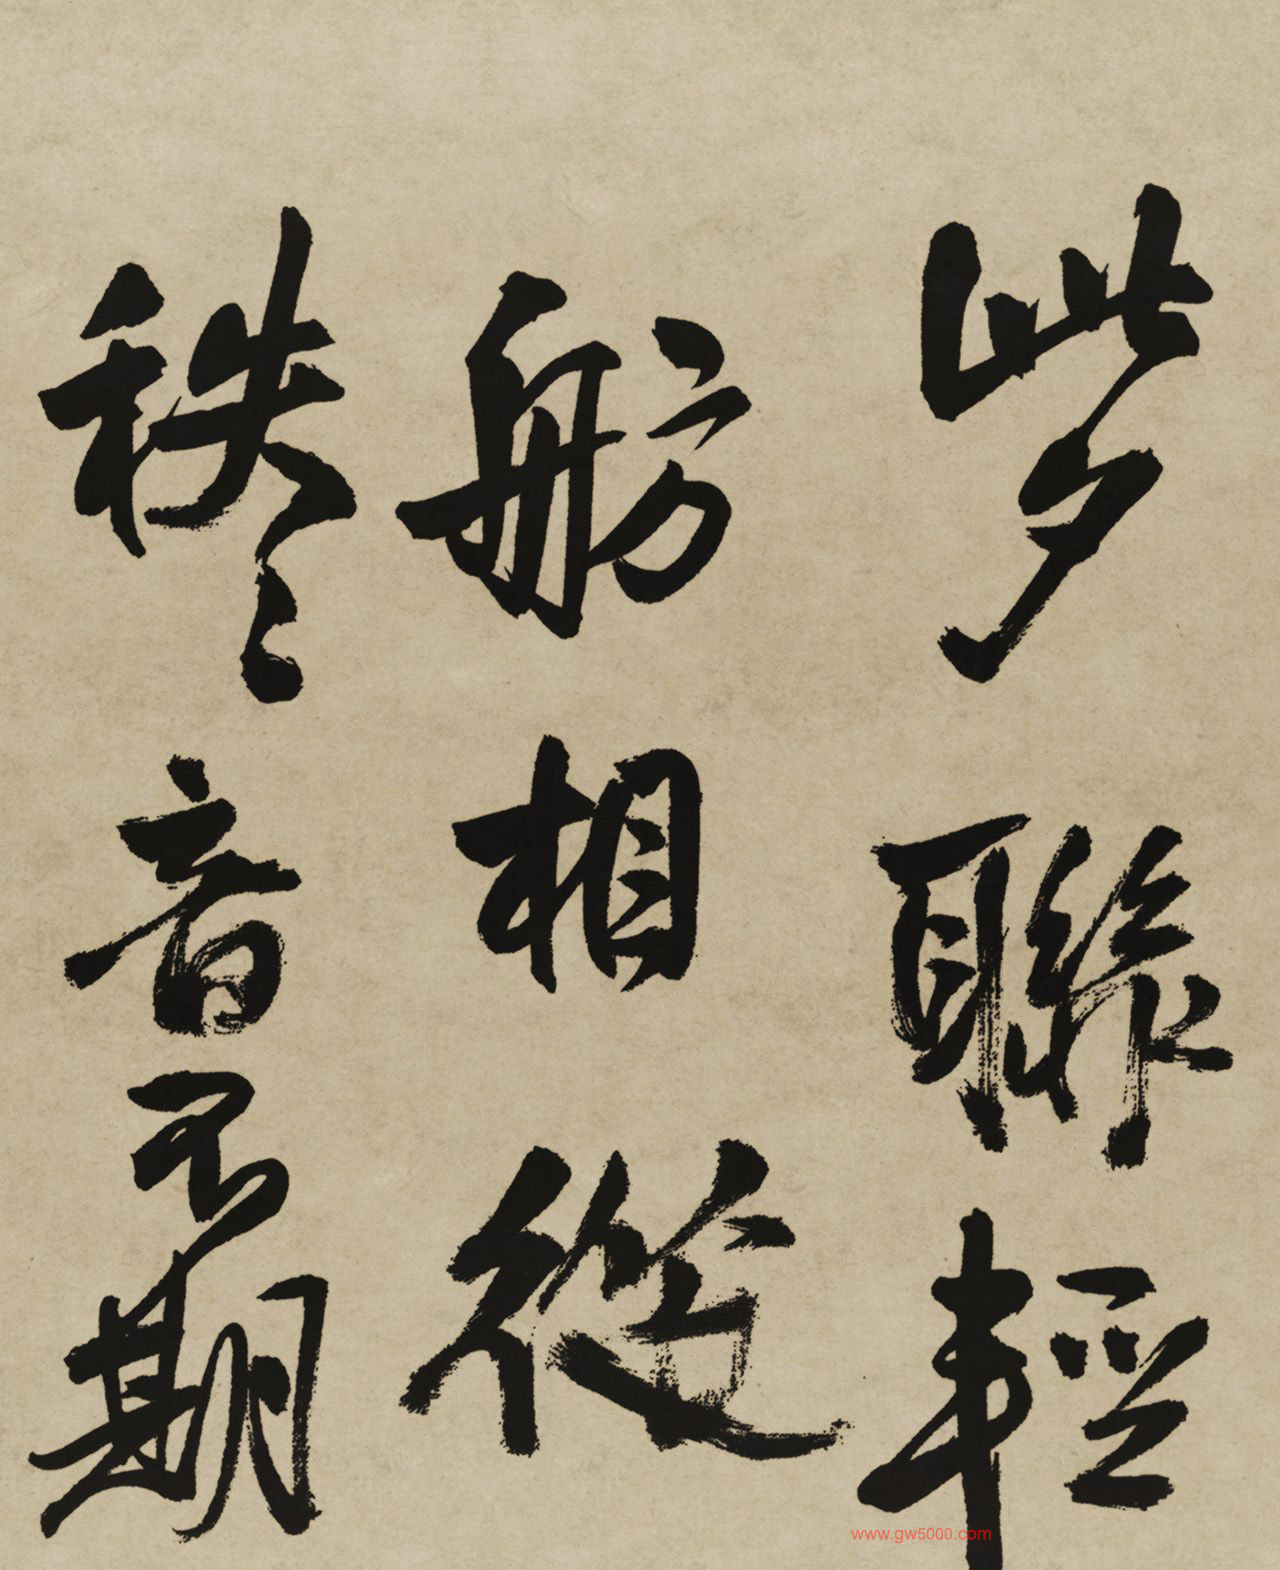 此夕聯輕
舫相從
秩〻音不期
www.gw5000.com